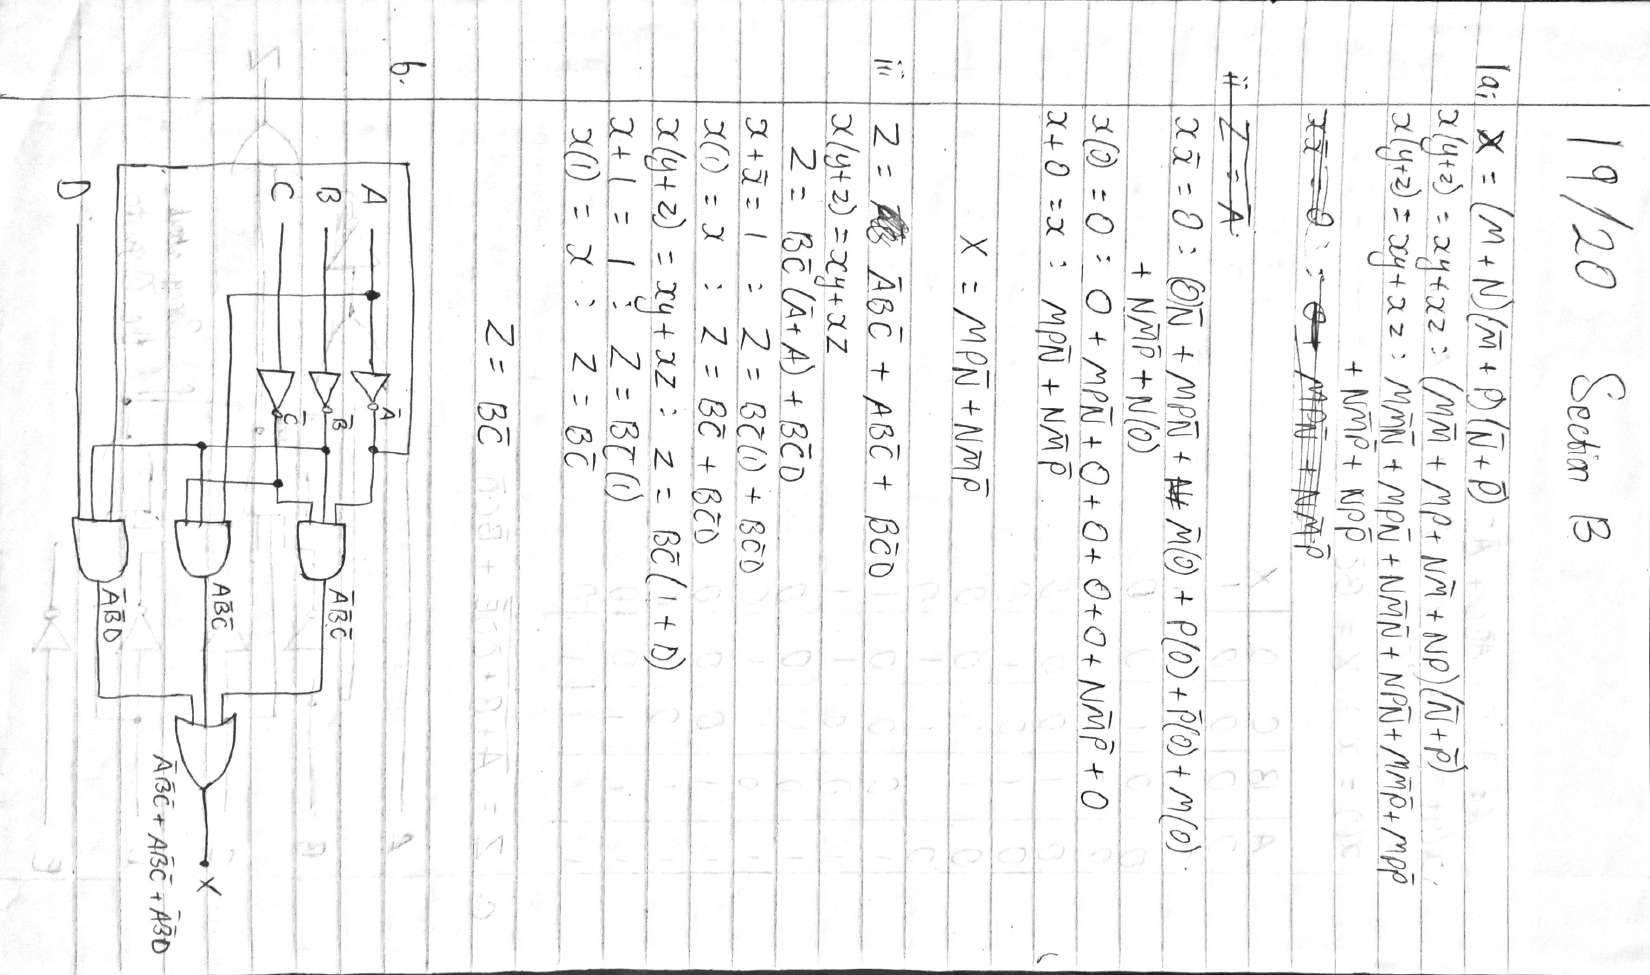 19/20 Section B
1a i X = (M + N)(M̅ + P)(N̅ + P̅)
x(y+z) = xy+xz : (MM̅ + MP + NM̅ + NP)(N̅ + P̅)
x(y+z) = xy+xz : MM̅N̅ + MPN̅ + NM̅N̅ + NPN̅ + MM̅P̅ + MPP̅
+ NM̅P̅ + NPP̅
xx̅ = 0 : 0 + MPN̅ + NM̅P̅
ii Z = A̅
xx̅ = 0 : (0)N̅ + MPN̅ + M̅(0) + P(0) + P̅(0) + M(0)
+ NM̅P̅ + N(0)
x(0) = 0 : 0 + MPN̅ + 0 + 0 + 0 + 0 + NM̅P̅ + 0
x + 0 = x : MPN̅ + NM̅P̅
X = MPN̅ + NM̅P̅
ii Z = A̅B̅C̅ + AB̅C̅ + B̅C̅D
x(y+z) = xy+xz
Z = B̅C̅(A̅+A) + B̅C̅D
x + x̅ = 1 : Z = B̅C̅(1) + B̅C̅D
x(1) = x : Z = B̅C̅ + B̅C̅D
x(y+z) = xy + xz : Z = B̅C̅(1 + D)
x + 1 = 1 : Z = B̅C̅(1)
x(1) = x : Z = B̅C̅
Z = B̅C̅
b.
A A̅ A̅B̅C̅
B B̅
C C̅ AB̅C̅ X
A̅B̅C̅ + AB̅C̅ + A̅B̅D
D A̅B̅D